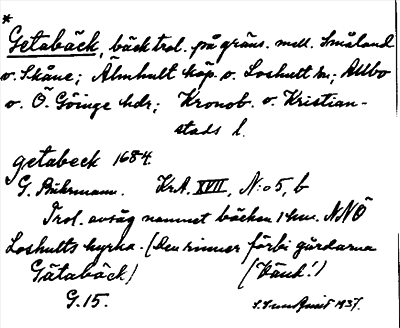 *
Getabäck, bäck trol. på gräns. mell. Småland
o. Skåne; Älmhult köp. o. Loshult sn; Allbo
o. Ö. Göinge hdr; Kronob. o. Kristian-
stads l.
getabeck 1684.
G. Buhrmann. Kr.A. XVII, N:o 5, b
Trol. avsåg namnet bäcken 1 km. NNÖ
Loshults kyrka. (Den rinner förbi gårdarna
Gätabäck) (Vänd!)
G. 15. 1937.